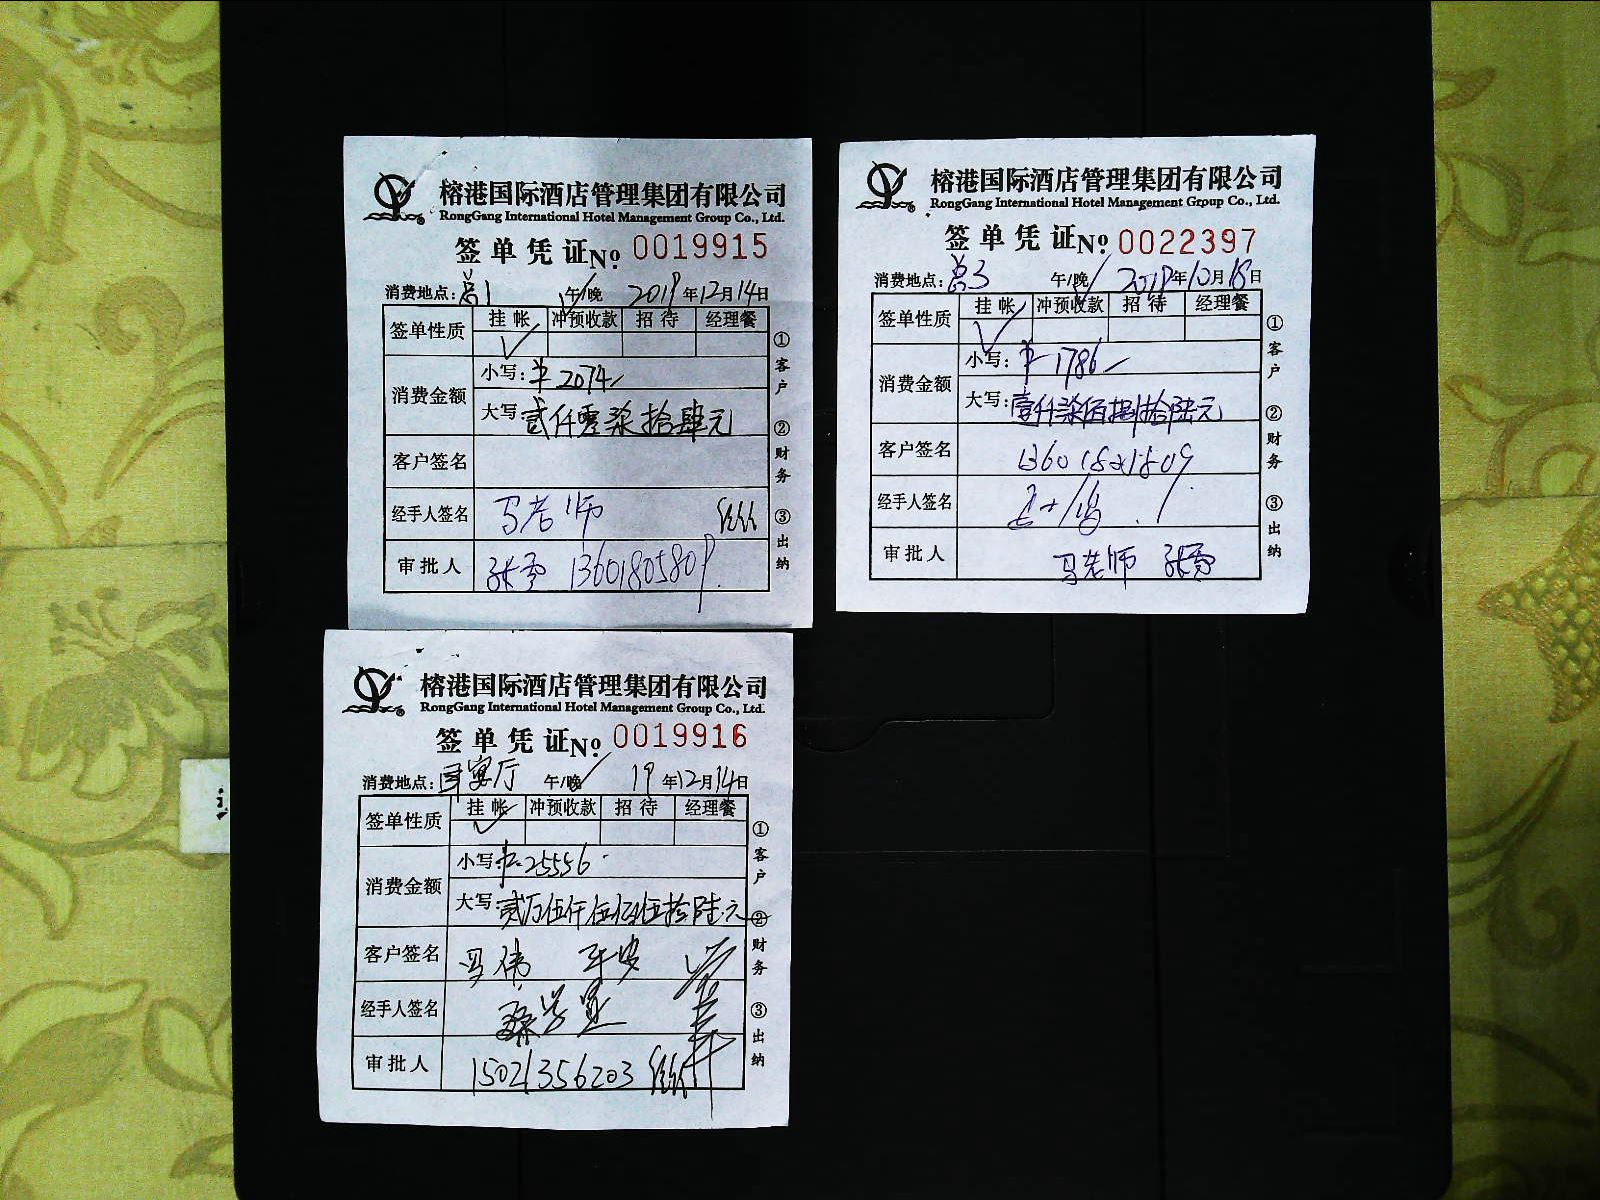 榕港国际酒店管理集团有限公司
RongGang International Hotel Management Group Co., Ltd.
签单凭证 No. 0019915
消费地点: 午/晚 2019年12月14日
签单性质 挂帐 冲预收款 招待 经理餐
消费金额
小写: ¥2074
大写: 贰仟零柒拾肆元
客户签名
经手人签名 马老师
审批人 张雪 13601805809
①客户 ②财务 ③出纳
榕港国际酒店管理集团有限公司
RongGang International Hotel Management Group Co., Ltd.
签单凭证 No. 0022397
消费地点: 午/晚 2019年10月18日
签单性质 挂帐 冲预收款 招待 经理餐
消费金额
小写: ¥1786
大写: 壹仟柒佰捌拾陆元
客户签名
经手人签名
审批人 马老师 张雪
①客户 ②财务 ③出纳
榕港国际酒店管理集团有限公司
RongGang International Hotel Management Group Co., Ltd.
签单凭证 No. 0019916
消费地点: 宴厅 午/晚 19年12月14日
签单性质 挂帐 冲预收款 招待 经理餐
消费金额
小写: ¥25556
大写: 贰万伍仟伍佰伍拾陆元
客户签名 冯伟
经手人签名
审批人 15021356203
①客户 ②财务 ③出纳